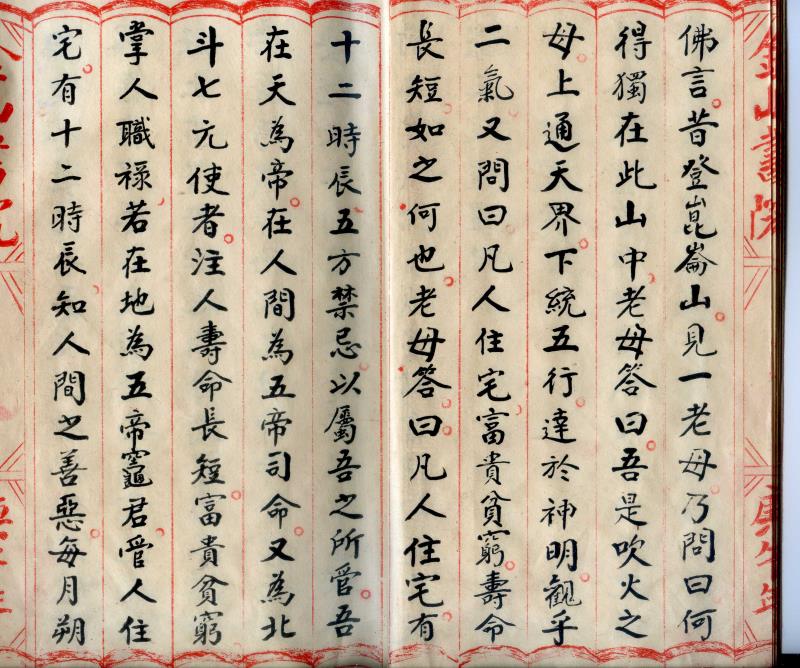 佛言昔登崑崙山見一老母乃問曰何
得獨在此山中老母答曰吾是吹火之
母上通天界下統五行達於神明觀乎
二氣又問曰凡人住宅富貴貧窮壽命
長短如之何也老母答曰凡人住宅有
十二時辰五方禁忌以屬吾之所管吾
在天為帝在人間為五帝司命又為北
斗七元使者注人壽命長短富貴貧窮
掌人職祿若在地為五帝竈君管人住
宅有十二時辰知人間之善惡每月朔